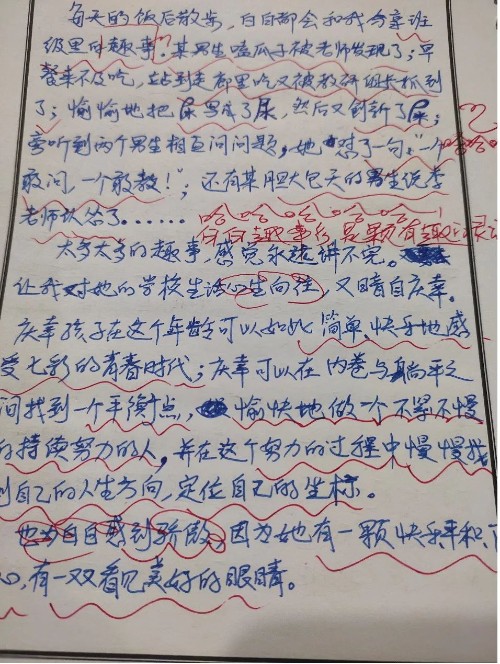 每天的饭后散步，白白都会和我分享班
级里的趣事。某男生嗑瓜子被老师发现了；早
餐来不及吃，站到走廊里吃又被教研组长抓到
了；愉愉地把尿写成了尿，然后又创新了屎；
旁听到两个男生相互问问题，她怼了一句："一个
敢问，一个敢教！"；还有某胆大包天的男生说李
老师认怂了……
哈哈哈哈哈！
白白趣事多 是颗有趣的灵
太多太多的趣事，感觉永远讲不完。
让我对她的学校生活心生向往，又暗自庆幸。
庆幸孩子在这个年龄可以如此简单、快乐地感
受七彩的青春时代；庆幸可以在内卷与躺平之
间找到一个平衡点，愉快地做一个不紧不慢
的持续努力的人，并在这个努力的过程中慢慢找
到自己的人生方向，定位自己的坐标。
也为白白感到骄傲，因为她有一颗快乐平和、
心，有一双看见美好的眼睛。